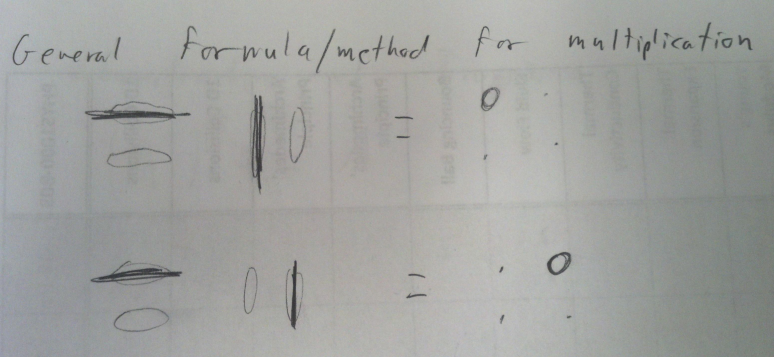 General formula/method for multiplication
=
=